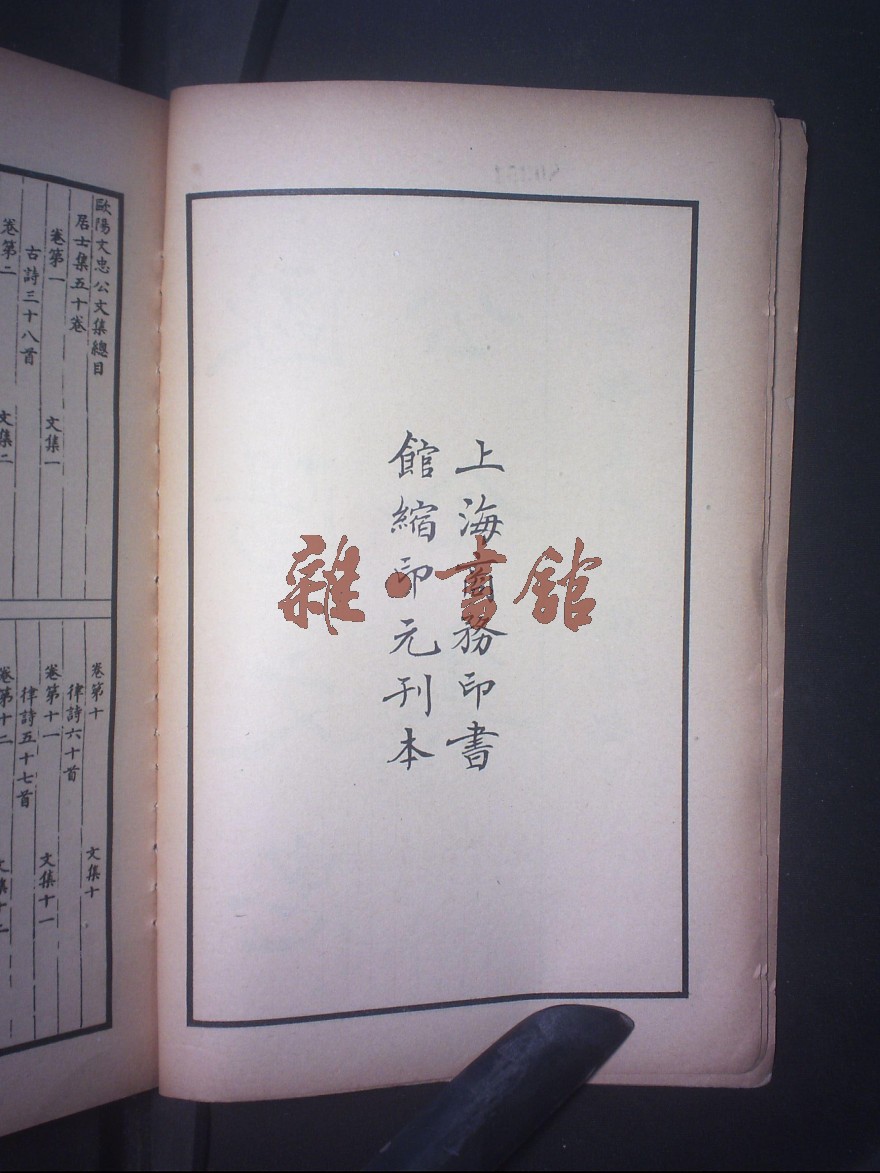 上海商務印書
館縮印元刊本
雜·書館
歐陽文忠公文集總目
居士集五十卷
卷第一 文集一
古詩三十八首
卷第二 文集二
卷第十 文集十
律詩六十首
卷第十一 文集十一
律詩五十七首
卷第十二 文集十二